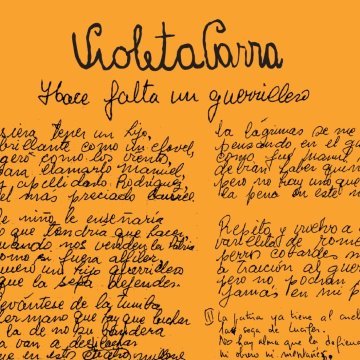 VioletaParra
Hace falta un guerrillero
siera tener un hijo,
brillante como un clavel,
gero como los vientos,
para llamarlo Manuel,
y apellidarlo Rodríguez,
el más preciado laurel.
De niño le enseñaria
lo que tendria que hacer,
cuando nos venden la Patria
como si fuera alfiler
quiero un hijo guerrillero
que la sepa defender.
levántese de la tumba
hermano que hay que luchar
la de no su bandera
van a
que en esto
la lágrimas se me
pensando en el gu
como fue Manuel
pero no hay uno que
la pena en este m
Repito y vuelvo a
varillitas de rome
perros cobardes m
a traición al gue
pero no podrán
jamás en mi p
La patria ya tiene al cuel
la soga de Lucifer.
No hay alma que la defien
ni obrero ni montañes.